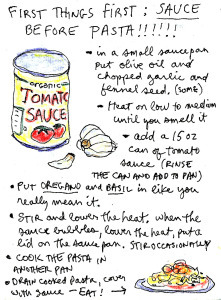 FIRST THINGS FIRST: SAUCE
BEFORE PASTA!!!!!!
• in a small saucepan
put olive oil and
chopped garlic and
fennel seed, (SOME)
• Heat on low to medium
until you smell it
• add a 15 oz
can of tomato
sauce (RINSE
THE CAN AND ADD TO PAN)
organic
TOMATO
SAUCE
• PUT OREGANO and BASIL in like you
really mean it.
• STIR and lower the heat, when the
sauce bubbles, lower the heat, put a
lid on the sauce pan. STIR OCCASIONALLY
• COOK THE PASTA IN
ANOTHER PAN
• DRAIN COOKED PASTA, cover
with sauce - EAT!